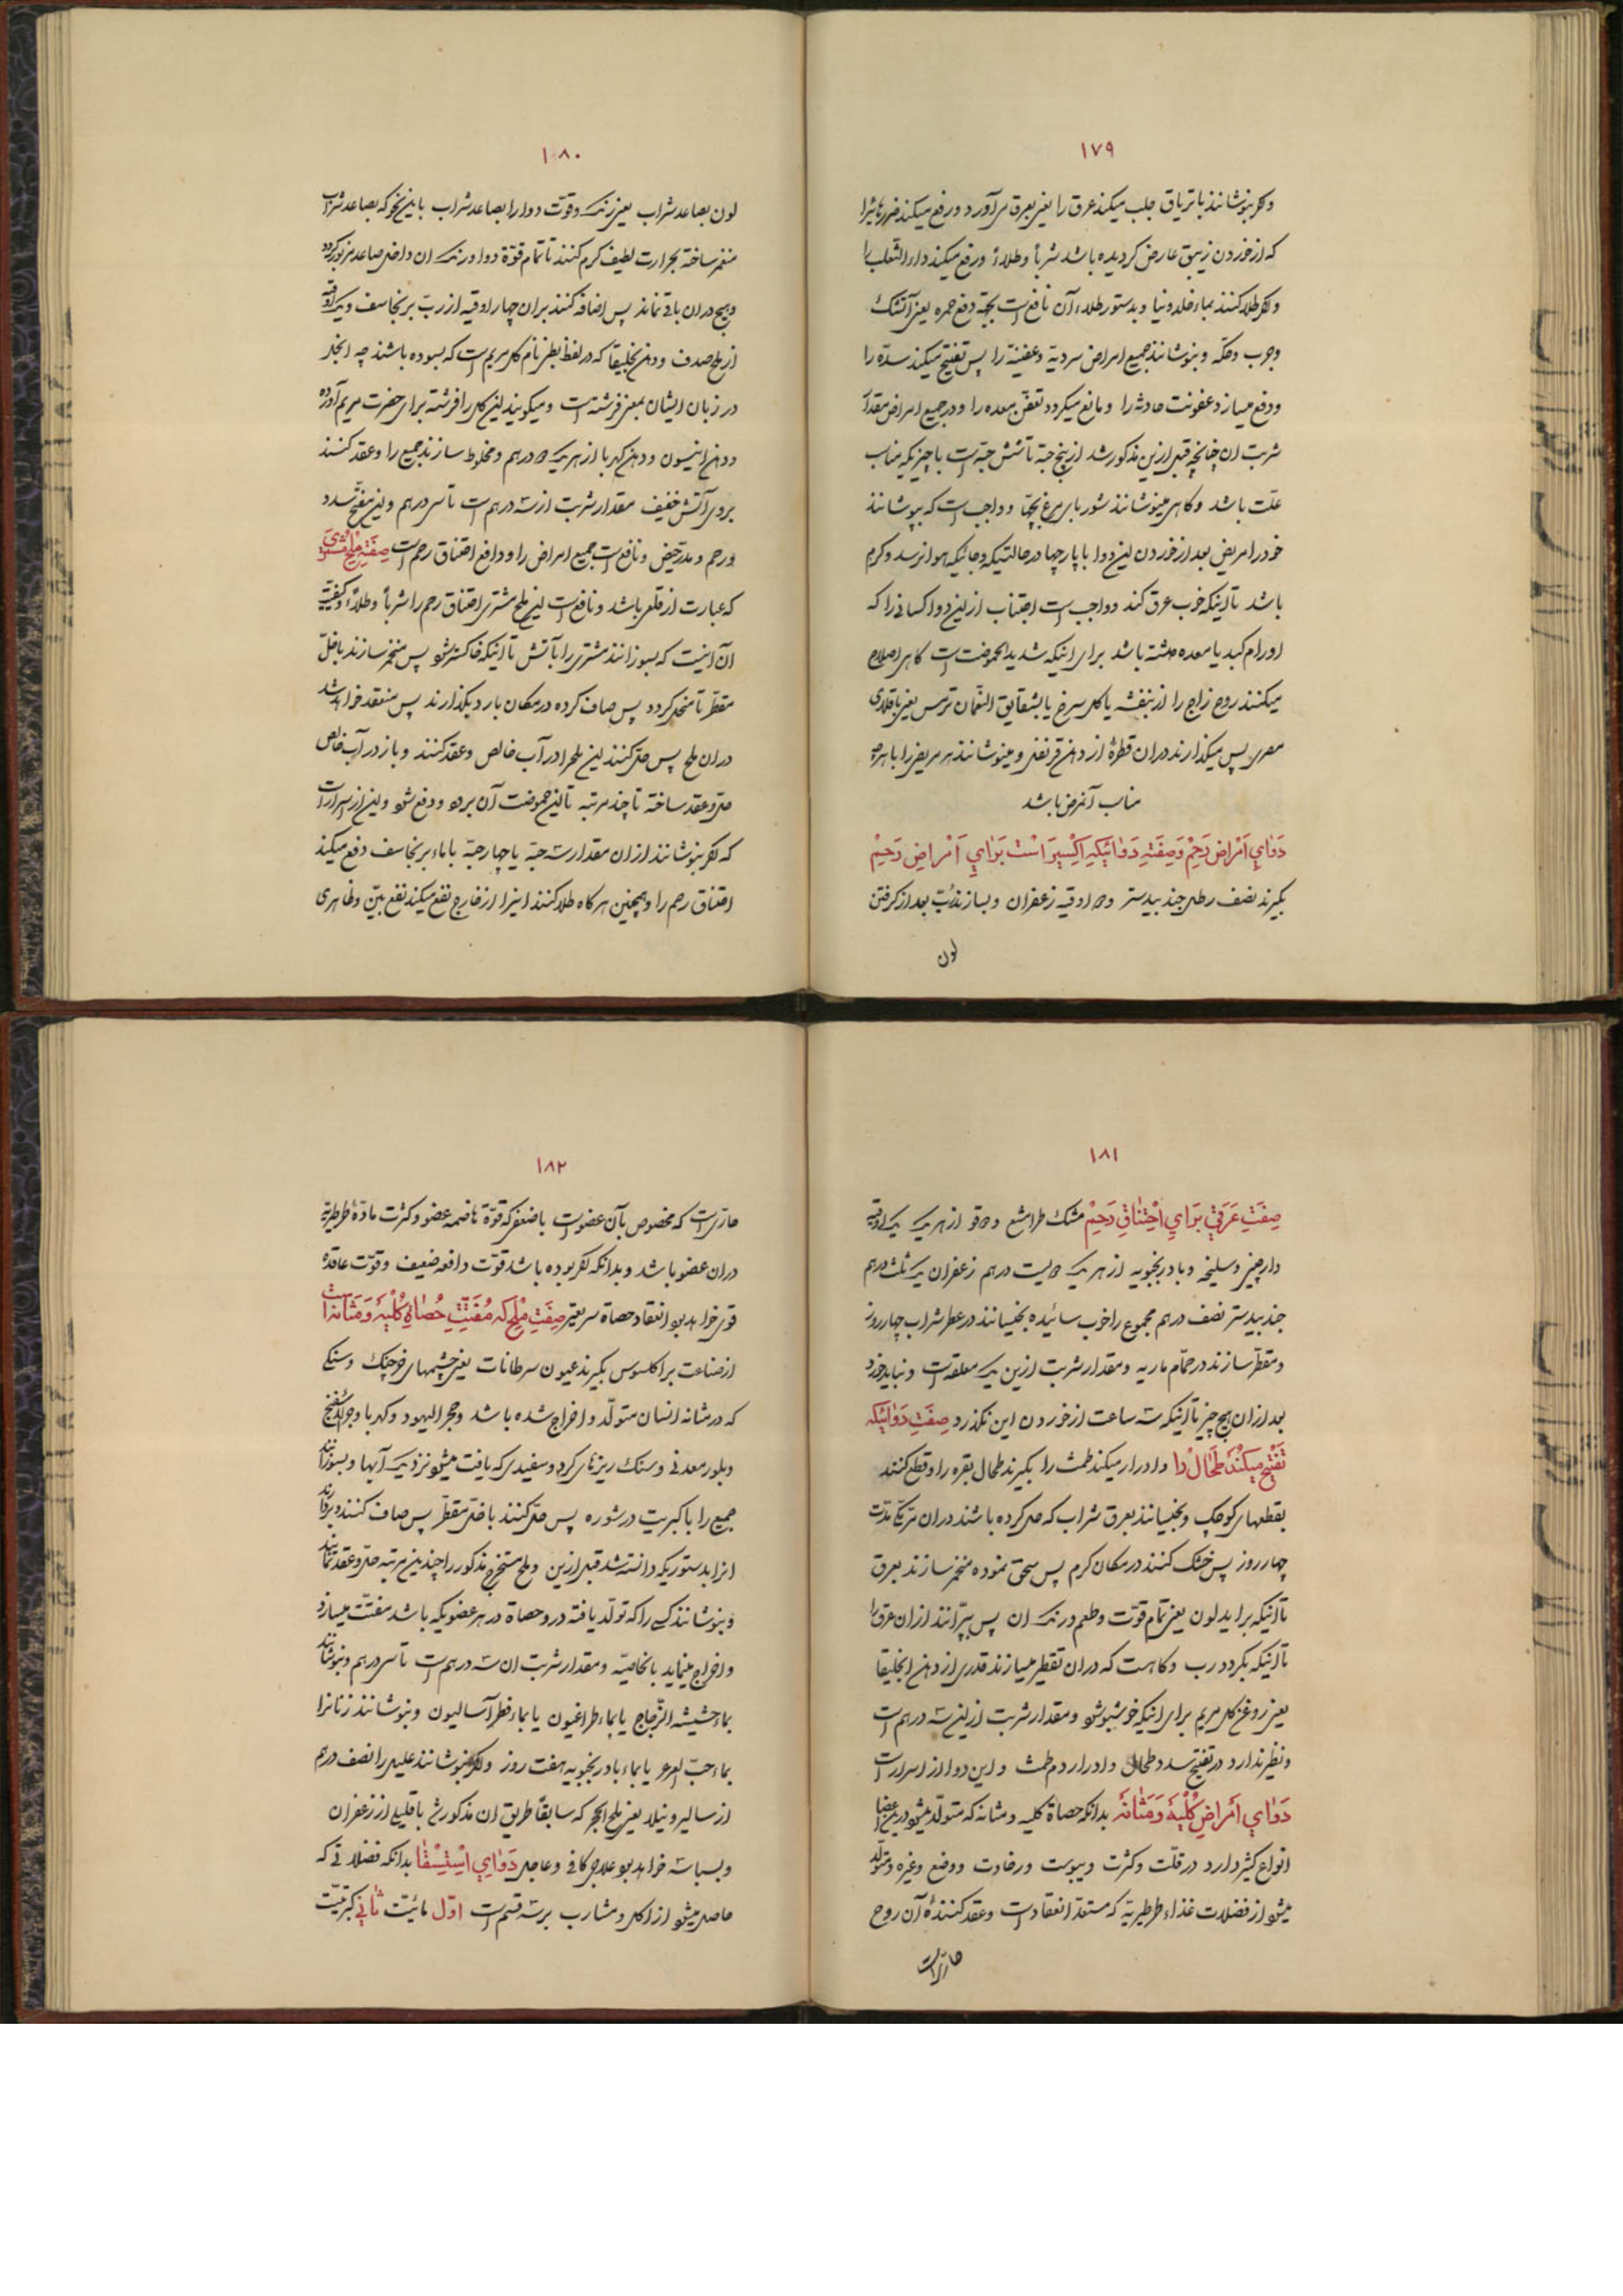 ۱۷۹
وکر بنوشانند با تریاق جلب میکند عرق را یعنی بعرق می‌آورد و رفع میکند ضررهائیرا
که از خوردن زیبق عارض کردیده باشد شرباً و طلاءً و رفع میکند داء الثعلب را
و اکر طلا کنند بماء خلدونیا و بدستور طلاء آن نافع است بجهة دفع حمره یعنی آتشک
و جرب و حکّه و بنوشانند جمیع امراض سردیة و عفنیّة را پس تفتیح میکند سدّه را
و دفع میسازد عفونت حادثه را و مانع میکردد تعفّن معده را و در جمیع امراض مقدار
شربت ان چنانچه قبل ازین مذکور شد از پنج حبّة تا شش حبّه است با چیزیکه مناسب
علّت باشد و کاهی مینوشانند شوربای مرغ بچها و واجب است که بپوشانند
خود را مریض بعد از خوردن این دوا با پارچها در حالتیکه و جائیکه هوا نرسد و کرم
باشد تا اینکه خوب عرق کند و واجب است اجتناب ازین دوا کسانی را که
اورام کبد یا معده داشته باشد برای اینکه شدید الحموضت است کاهی اصلاح
میکنند روح زاج را از بنفشه یا کل سرخ یا بشقایق النّعمان ترمس یعنی باقلای
مصری پس میکذارند دران قطرهٔ از دهن قرنفل و مینوشانند هر مریض را با هرچه
مناسب آنمرض باشد
دَوٰایِ اَمْراضِ رَحِمْ وَصِفَتِ دَوٰائیکه اِکْسیرَ اسْت بَرٰایِ اَمْراضِ رَحِمْ
بکیرند نصف رطل جند بیدستر و دو اوقیه زعفران و بسازند ربّ بعد از کرفتن
لون
۱۸۰
لون بصاعد شراب یعنی رنک و قوّت دوا را بصاعد شراب باین نحو که بصاعد شراب
منغمر ساخته بحرارت لطیف کرم کنند تا تمام قوّة دوا و رنک ان داخل صاعد مزبور کردد
و هیچ دران باقی نماند پس اضافه کنند بران چهار اوقیه از ربّ برنجاسف و یک اوقیه
از ملح صدف و دهن انجلیقا که در لفظ بطر نام کل مریم است که بسوده باشند چه انجل
در زبان ایشان بمعنی فرشته است و میکویند این کل را فرشته برای حضرت مریم آورده
و دهن انیسون و دهن کهربا از هریک دو درهم و مخلوط سازند جمیع را و عقد کنند
بروی آتش خفیف مقدار شربت از سه درهم است تا سی درهم و این مفتّح سدد
و رحم و مدرّ حیض و نافع است جمیع امراض را و دافع اختناق رحم است صِفَتِ مِلْحِ مُشْتَری
که عبارت از قلعی باشد و نافع است این ملح مشتری اختناق رحم را شرباً و طلاءً و کیفیّت
ان اینست که بسوزانند مشتری را بآتش تا اینکه خاکستر شود پس منغمر سازند باخلّ
مقطّر تا منحل کردد پس صاف کرده در مکان بارد بکذارند پس منعقد خواهد شد
دران ملح پس حل کنند این ملح را در آب خالص و عقد کنند و باز در آب خالص
حل و عقد ساخته تا چند مرتبه تا این حموضت آن برود و دفع شود و این از اسرار است
که اکر بنوشانند از ان مقدار سه حبّه یا چهار حبّه با ماء برنجاسف دفع میکند
اختناق رحم را و همچنین هرکاه طلا کنند اینرا از خارج نفع میکند نفع بیّن و ظاهری
۱۸۱
صِفَتِ عَرَقی بَرٰایِ اخْتِناقِ رَحِمْ مشک طرامشیع و دوقو از هریک یک اوقیه
دارچینی و سلیخه و بادرنجبویه از هریک دویست درهم زعفران یک ثلث درهم
جند بیدستر نصف درهم مجموع را خوب سائیده بخیسانند در عطر شراب چهار روز
و مقطّر سازند در حمّام ماریه و مقدار شربت ازین یک معلقه است و نباید خورد
بعد از ان هیچ چیز تا اینکه سه ساعت از خوردن این نکذرد صِفَتِ دَوٰائیکه
تَفْتیح میکُنَد طَحٰال را و ادرار میکند طمث را بکیرند طحال بقره را و قطع کنند
بقطعهای کوچک و بخیسانند بعرق شراب که حل کرده باشند دران مرّ مکّی مدّت
چهار روز پس خشک کنند در مکان کرم پس سحق نموده منغمر سازند بعرق
تا اینکه براید لون یعنی تمام قوّت و طعم و رنک ان پس بپرّانند از ان عرق را
تا اینکه بکردد رب و کاهست که دران تقطیر میسازند قدری از دهن انجلیقا
یعنی روغن کل مریم برای اینکه خوشبو شود و مقدار شربت ازین سه درهم است
و نظیر ندارد در تفتیح سدد طحال و ادرار دم طمث و این دوا از اسرار است
دَوٰایِ اَمْراضِ کُلْیَه وَ مَثٰانَه بدانکه حصاة کلیه و مثانه که متولّد میشود درین اعضا
انواع کثیر دارد در قلّت و کثرت و یبوست و رخاوت و وضع و غیره و متولّد
میشود از فضلات غذاء طرطیریّه که مستعدّ انعقاد است و عقد کنندهٔ آن روح
حارّ است
۱۸۲
حارّ است که مخصوص بآن عضو است با ضعفی که قوّة هاضمه عضو و کثرت مادّهٔ طرطیریّه
دران عضو باشد و بدانکه اکر بوده باشد قوّت دافعه ضعیف و قوّت عاقده
قوی خواهد بود انعقاد حصاة سریعتر صِفَتِ مِلْحی که مُفَتِّتِ حُصٰاةِ کُلْیَه وَ مَثٰانَه است
از صناعت براکلسوس بکیرند عیون سرطانات یعنی چشمهای خرچنک و سنکی
که در مثانه انسان متولّد و اخراج شده باشد و حجر الیهود و کهربا و حجر الاسفنج
و بلور معدنی و سنک ریزهای کرد و سفیدی که یافت میشود نزدیک آبها و بسوزانند
جمیع را با کبریت در شوره پس حل کنند باخلّ مقطّر پس صاف کنند و بپرانند
انرا بدستوریکه دانسته شد قبل ازین و ملح مستخرج مذکور را چندین مرتبه حل و عقد نمایند
و بنوشانند کسی را که تولّد یافته در و حصاة در هر عضویکه باشد مفتّت میسازد
و اخراج مینماید بالخاصیّه و مقدار شربت ان سه درهم است تا سی درهم و بنوشانند
بماء حشیشه الزّجاج یا بماء طراغیون یا بماء فطر آسالیون و بنوشانند زنانرا
بماء حبّ العرعر یا بماء بادرنجبویه هفت روز و اکر بنوشانند علیل را نصف درهم
از سالیرونیلا یعنی ملح الحجر که سابقاً طریق ان مذکور شد با قلیلی از زعفران
و بسباسه خواهد بود علاج کافی و عاجل دَوٰایِ اسْتِسْقٰا بدانکه فضلاتی که
حاصل میشود از اکل و مشارب بر سه قسم است اوّل مائیّت ثٰانی کبریتیّت